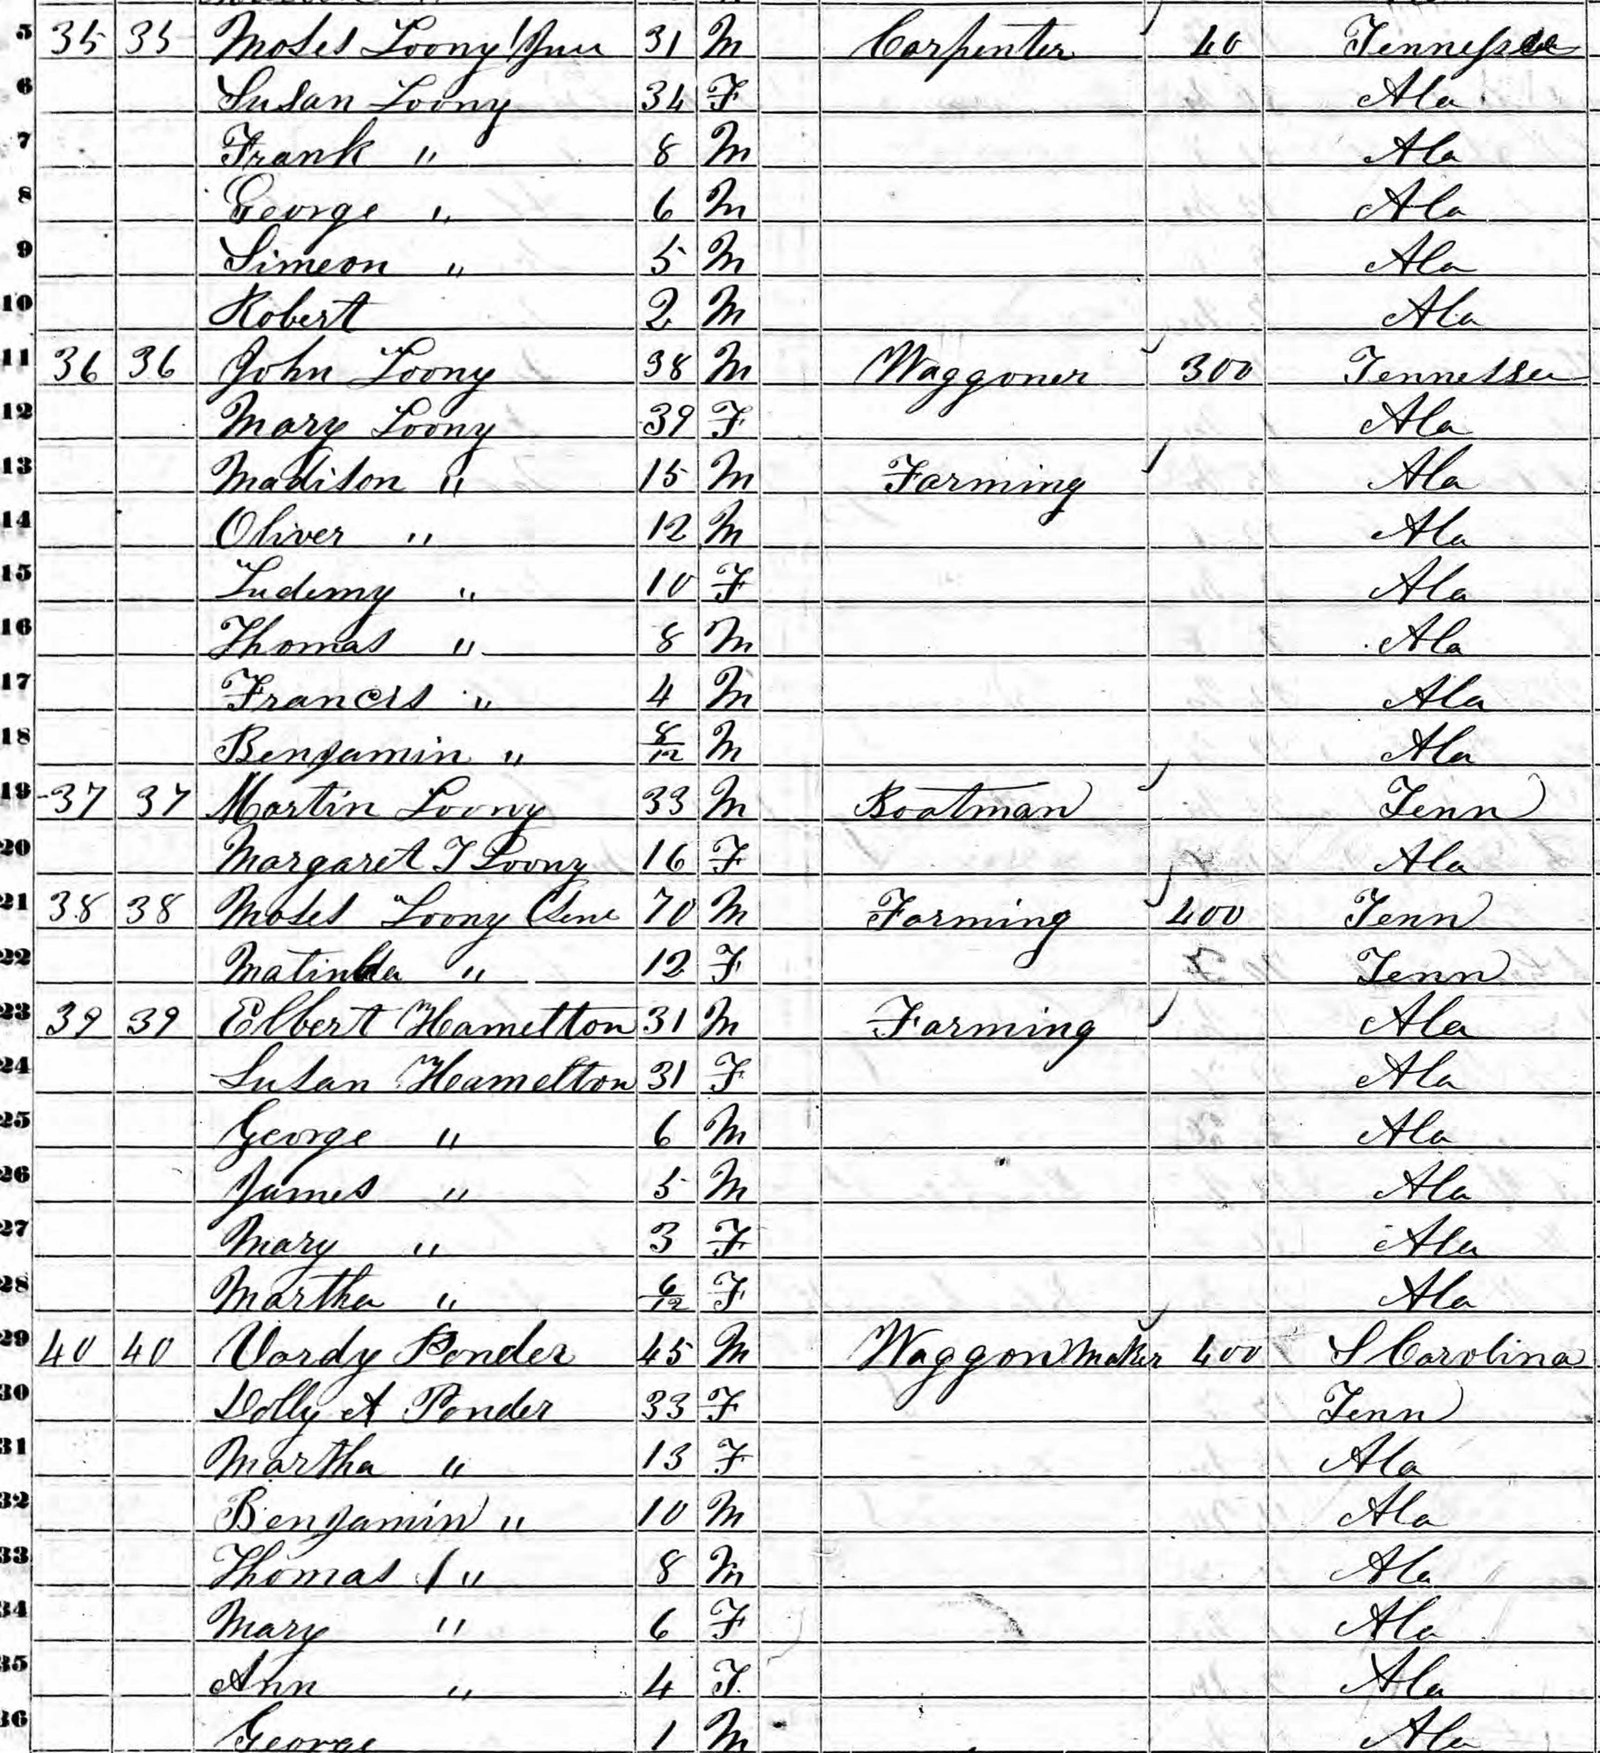 5 35 35 Moses Loony (Junr 31 M Carpenter 40 Tennessee
6 Susan Loony 34 F Ala
7 Frank " 8 M Ala
8 George " 6 M Ala
9 Simeon " 5 M Ala
10 Robert 2 M Ala
11 36 36 John Loony 38 M Waggoner 300 Tennessee
12 Mary Loony 39 F Ala
13 Madison " 15 M Farming Ala
14 Oliver " 12 M Ala
15 Ludemy " 10 F Ala
16 Thomas " 8 M Ala
17 Francis " 4 M Ala
18 Benjamin " 8/12 M Ala
19 37 37 Martin Loony 33 M Boatman Tenn
20 Margaret T Loony 16 F Ala
21 38 38 Moses Loony (Sen 70 M Farming 400 Tenn
22 " 12 F Tenn
23 39 39 Elbert Hamelton 31 M Farming Ala
24 Susan Hamelton 31 F Ala
25 George " 6 M Ala
26 James " 5 M Ala
27 Mary " 3 F Ala
28 Martha " 6/12 F Ala
29 40 40 Vardy Ponder 45 M Waggon Maker 400 S Carolina
30 Dolly A Ponder 33 F Tenn
31 Martha " 13 F Ala
32 Benjamin " 10 M Ala
33 Thomas " 8 M Ala
34 Mary " 6 F Ala
35 Ann " 4 F Ala
36 George 1 M Ala